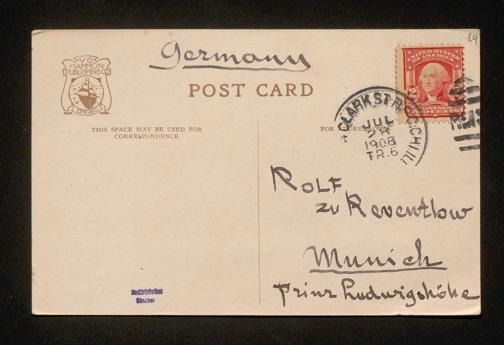 Germany
V.O. HAMMON
PUBLISHING CO.
CHICAGO
POST CARD
THIS SPACE MAY BE USED FOR
CORRESPONDENCE
FOR
UNITED STATES
OF AMERICA
CLARK ST. R.P.O. CHI. ILL
JUL
1908
TR.6
Rolf
zu Reventlow
Munich
Prinz Ludwigshöhe